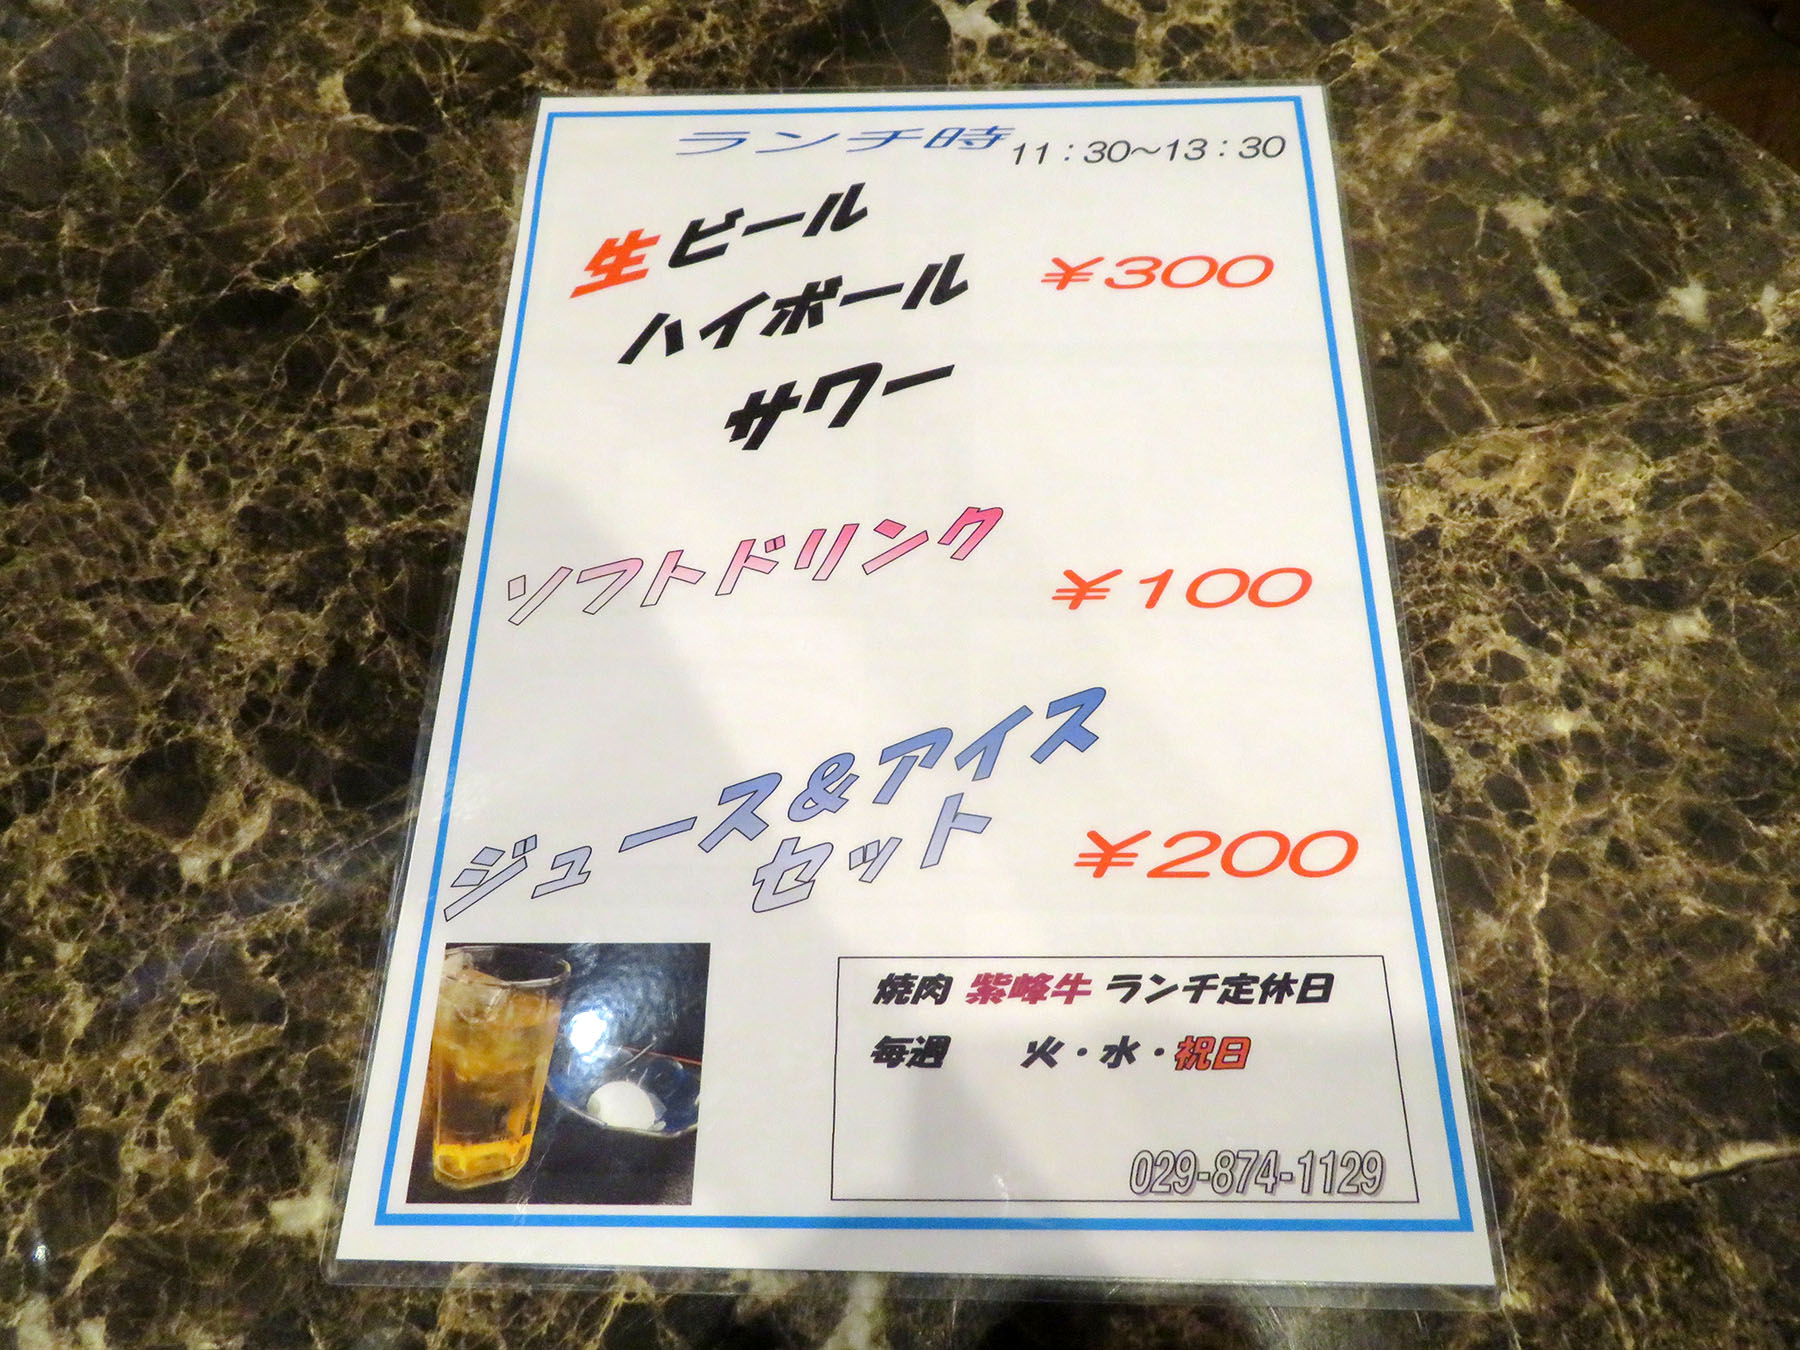 ランチ時 11：30～13：30
生ビール
ハイボール ￥300
サワー
ソフトドリンク ￥100
ジュース＆アイス
セット ￥200
焼肉 紫峰牛 ランチ定休日
毎週 火・水・祝日
029-874-1129